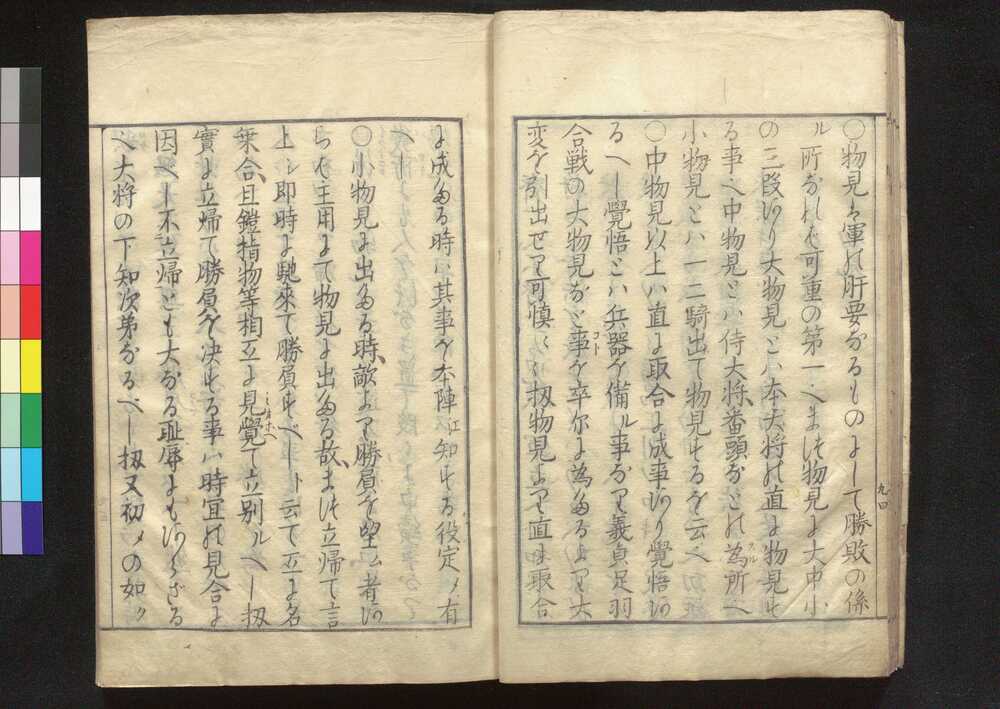 ○物見は軍の肝要なるものにして勝敗の係
ル所なれバ可重の第一也まづ物見に大中小
の三段あり大物見とハ本大将の直に物見す
る事也中物見とハ侍大将、番頭などの為所也
小物見とハ一二騎出て物見するを云也
○中物見以上ハ直に取合に成事あり覺悟あ
るべし覺悟とハ兵器を備ル事なり義貞足羽
合戦の大物見など事を卒尓に為たるより大
変を引出せり可慎々々扨物見より直に取合
九 四
に成たる時ハ其事を本陣江知する役定メ有
○小物見に出たる時、敵より勝負を望ム者あ
らバ主用にて物見に出たる故、まづ立帰て言
上シ即時に馳來て勝負すべしト云て互に名
乗合、且鎧指物等相互に見覺て立別ルべし扨
實に立帰て勝負を决する事ハ時宜の見合に
因べし不立帰とも大なる耻辱にもあらざる
也大将の下知次第なるべし扨又初メの如ク